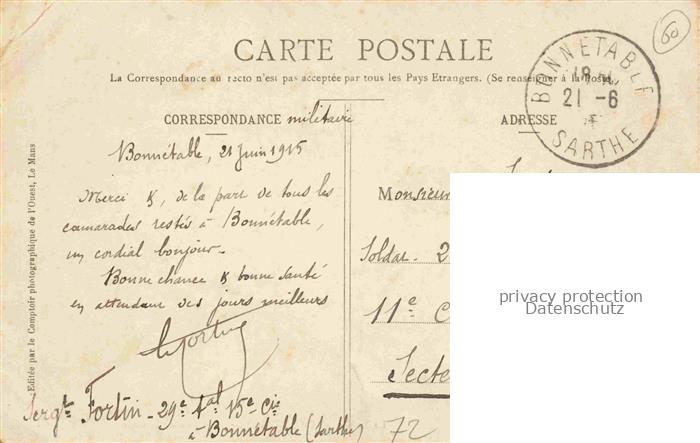 60
CARTE POSTALE
La Correspondance au recto n'est pas acceptée par tous les Pays Etrangers. (Se renseigner à la Poste.
BONNÉTABLE
18
21 -6
SARTHE
CORRESPONDANCE militaire
ADRESSE
Bonnétable, 21 Juin 1915
Merci &, de la part de tous les
camarades restés à Bonnétable,
un cordial bonjour.
Bonne chance & bonne santé
en attendant des jours meilleurs
Fortin
Sergt Fortin - 29e tal 15e Cie
à Bonnétable (Sarthe)
Monsieur
Soldat 2
11e C
Secte
72
privacy protection
Datenschutz
Editée par le Comptoir photographique de l'Ouest, Le Mans